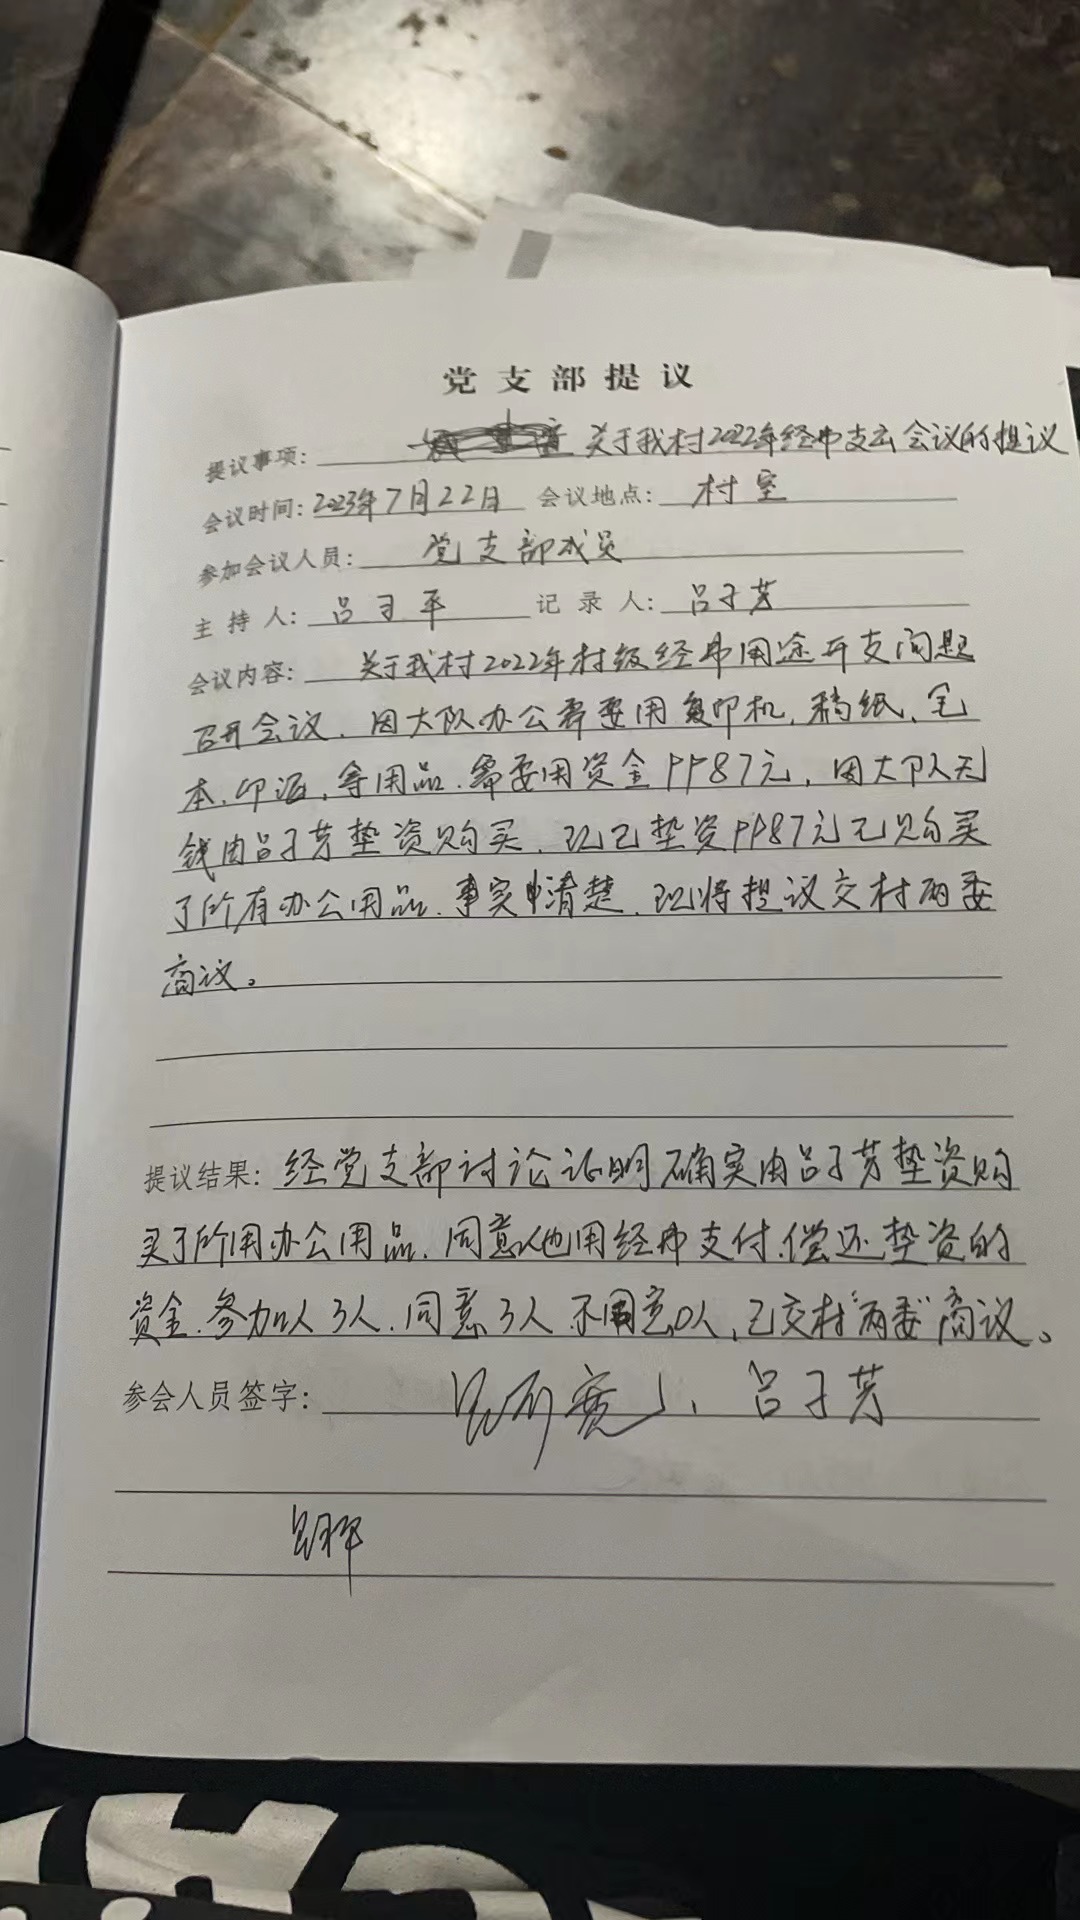 党支部提议
提议事项: 关于我村2022年经费支出会议的提议
会议时间: 2023年7月22日 会议地点: 村室
参加会议人员: 党支部成员
主持人: 吕子平 记录人: 吕子芳
会议内容: 关于我村2022年村级经费用途开支问题
召开会议.因大队办公需要用复印机,稿纸,笔
本,印泥,等用品.需要用资金9987元,因大队无
钱由吕子芳垫资购买.现已垫资9987元已购买
了所有办公用品.事实清楚.现将提议交村两委
商议。
提议结果: 经党支部讨论证明确实由吕子芳垫资购
买了所用办公用品.同意他用经费支付.偿还垫资的
资金.参加人3人.同意3人 不同意0人,已交村"两委"商议。
参会人员签字: 吕子芳